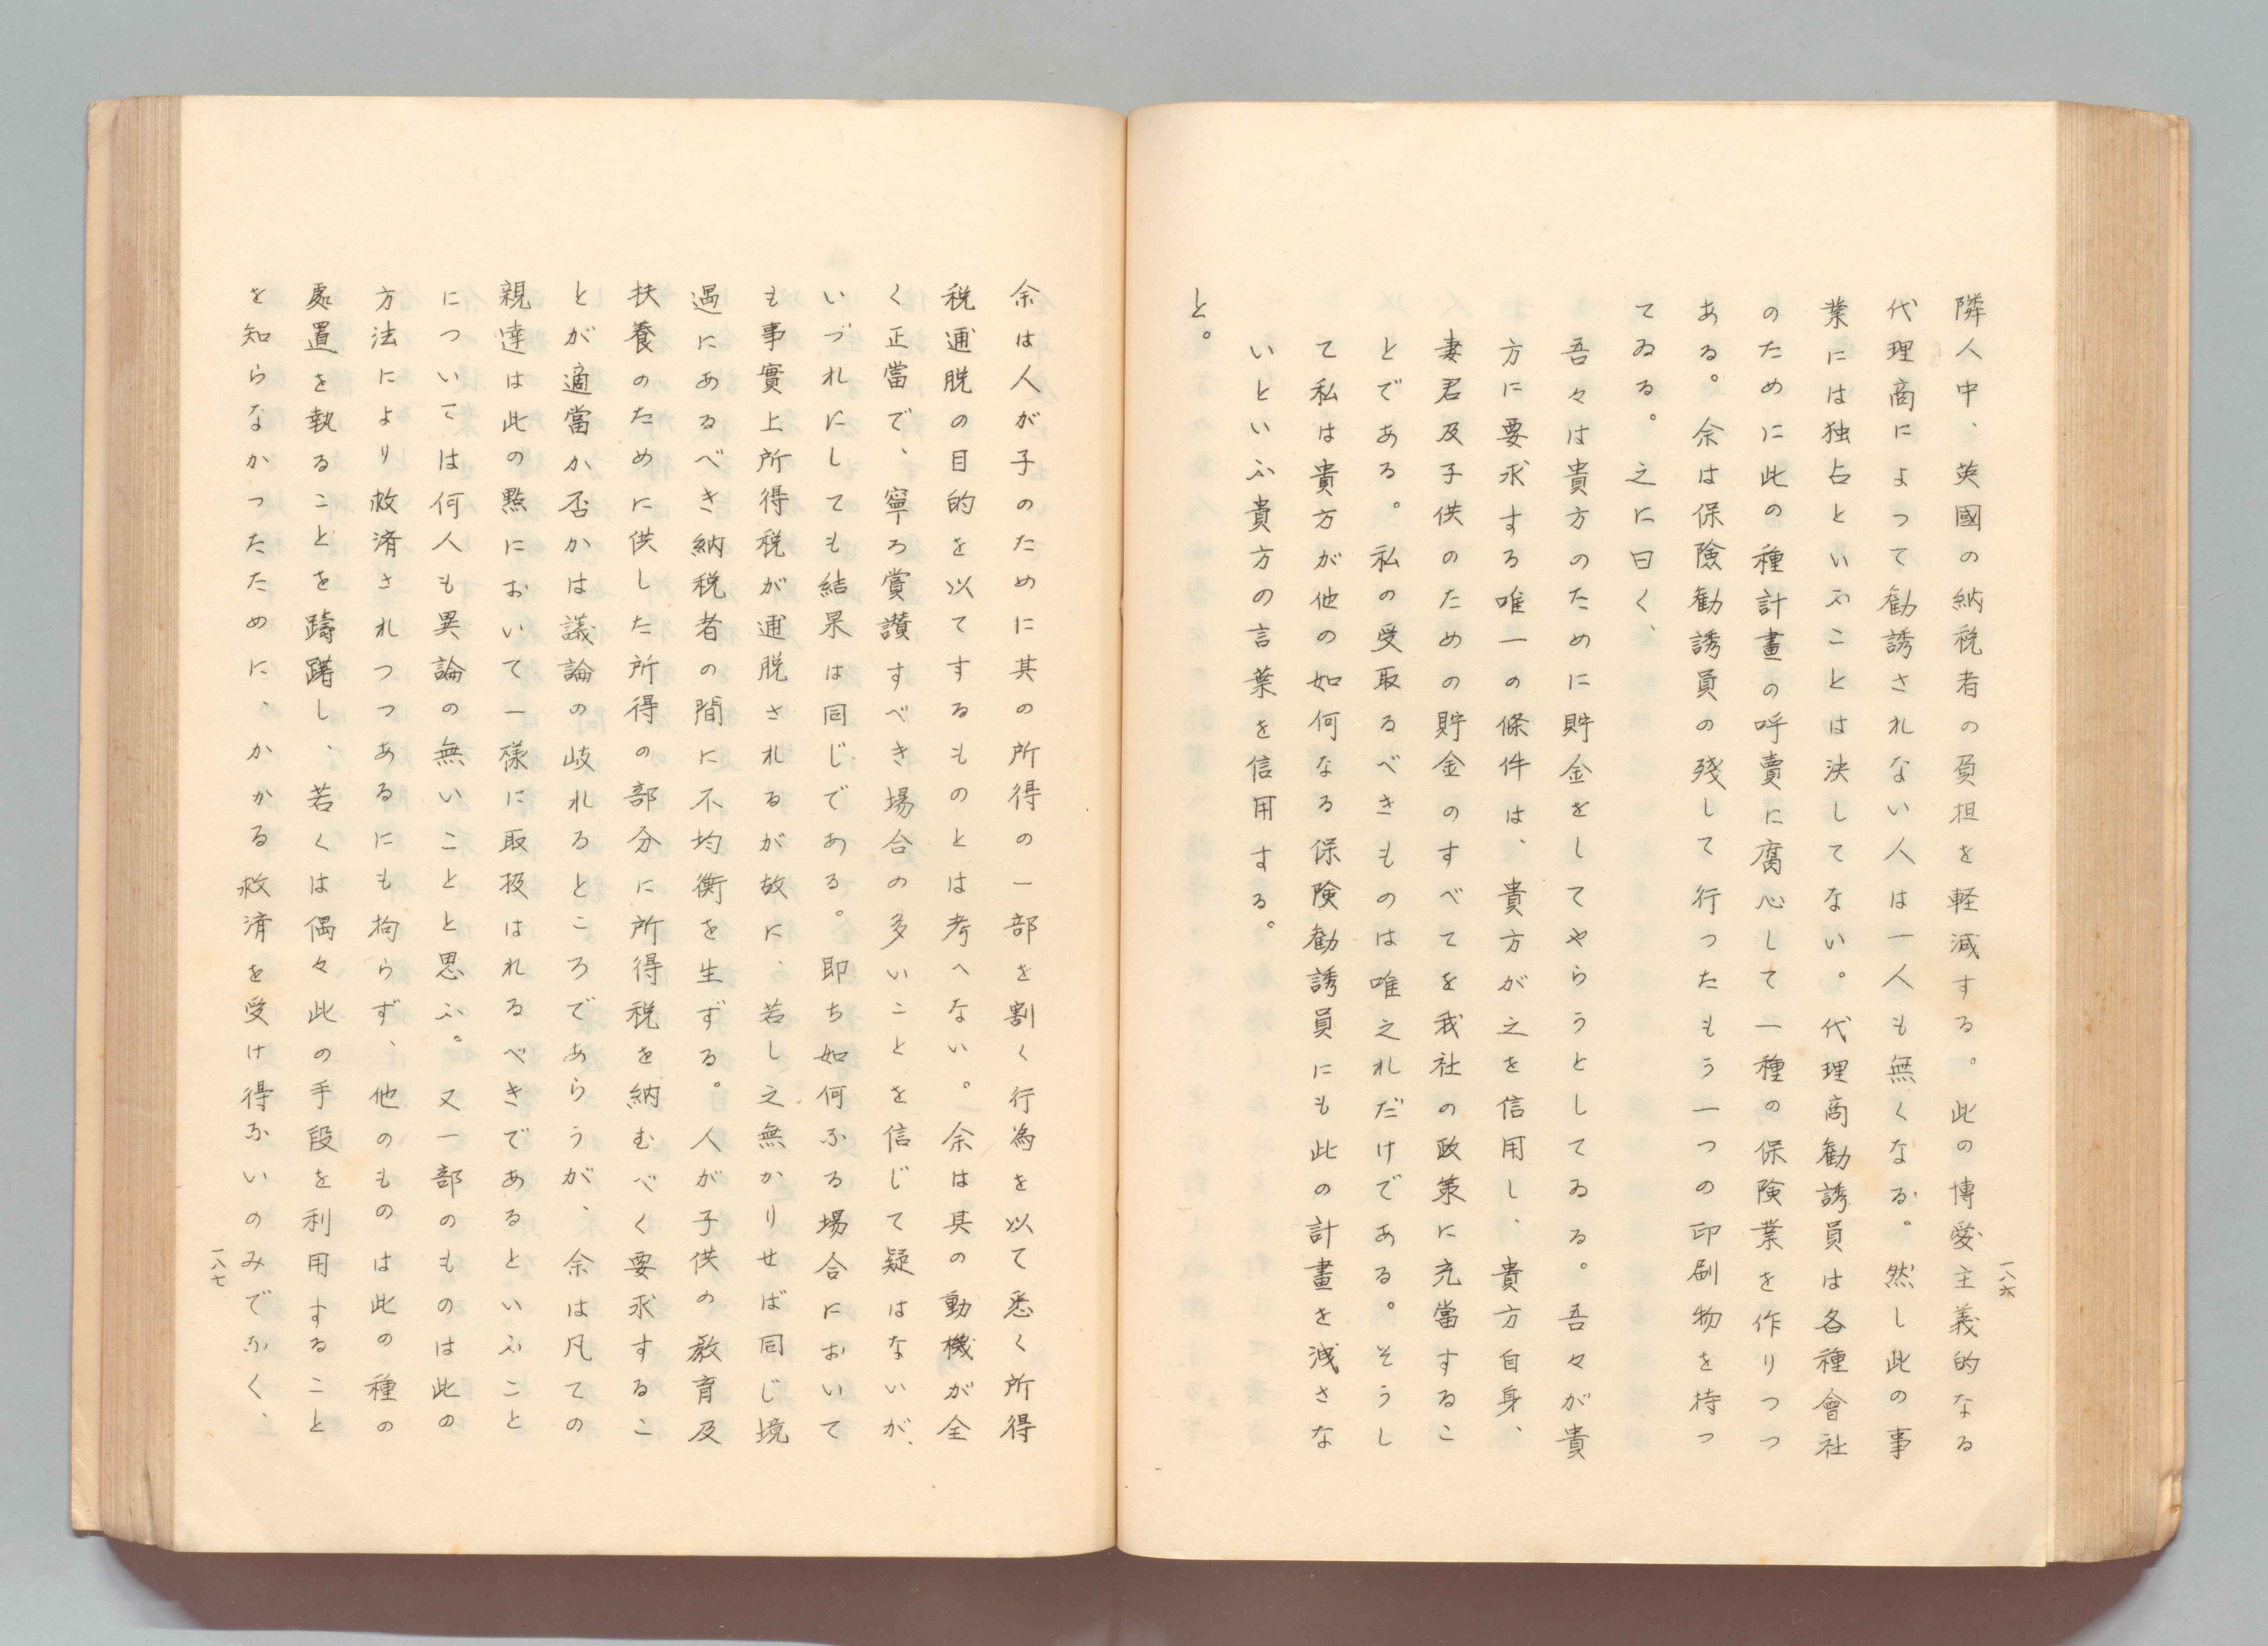 隣人中、英國の納税者の負担を軽減する。此の博愛主義的なる
代理商によって勧誘されない人は一人も無くなる。然し此の事
業には独占といふことは決してない。代理商勧誘員は各種會社
のために此の種計畫の呼賣に腐心して一種の保険業を作りつつ
ある。余は保険勧誘員の残して行ったもう一つの印刷物を持つ
てゐる。之に曰く、
吾々は貴方のために貯金をしてやらうとしてゐる。吾々が貴
方に要求する唯一の條件は、貴方が之を信用し、貴方自身、
妻君及子供のための貯金のすべてを我社の政策に充當するこ
とである。私の受取るべきものは唯之れだけである。そうし
て私は貴方が他の如何なる保険勧誘員にも此の計畫を洩さな
いといふ貴方の言葉を信用する。
と。
一八六
余は人が子のために其の所得の一部を割く行為を以て悉く所得
税逋脱の目的を以てするものとは考へない。余は其の動機が全
く正當で、寧ろ賞讃すべき場合の多いことを信じて疑はないが、
いづれにしても結果は同じである。即ち如何なる場合において
も事實上所得税が逋脱されるが故に、若し之無かりせば同じ境
遇にあるべき納税者の間に不均衡を生ずる。人が子供の教育及
扶養のために供した所得の部分に所得税を納むべく要求するこ
とが適當か否かは議論の岐れるところであらうが、余は凡ての
親達は此の點において一様に取扱はれるべきであるといふこと
については何人も異論の無いことと思ふ。又一部のものは此の
方法により救済されつつあるにも拘らず、他のものは此の種の
處置を執ることを躊躇し、若くは偶々此の手段を利用すること
を知らなかったために、かかる救済を受け得ないのみでなく、
一八七